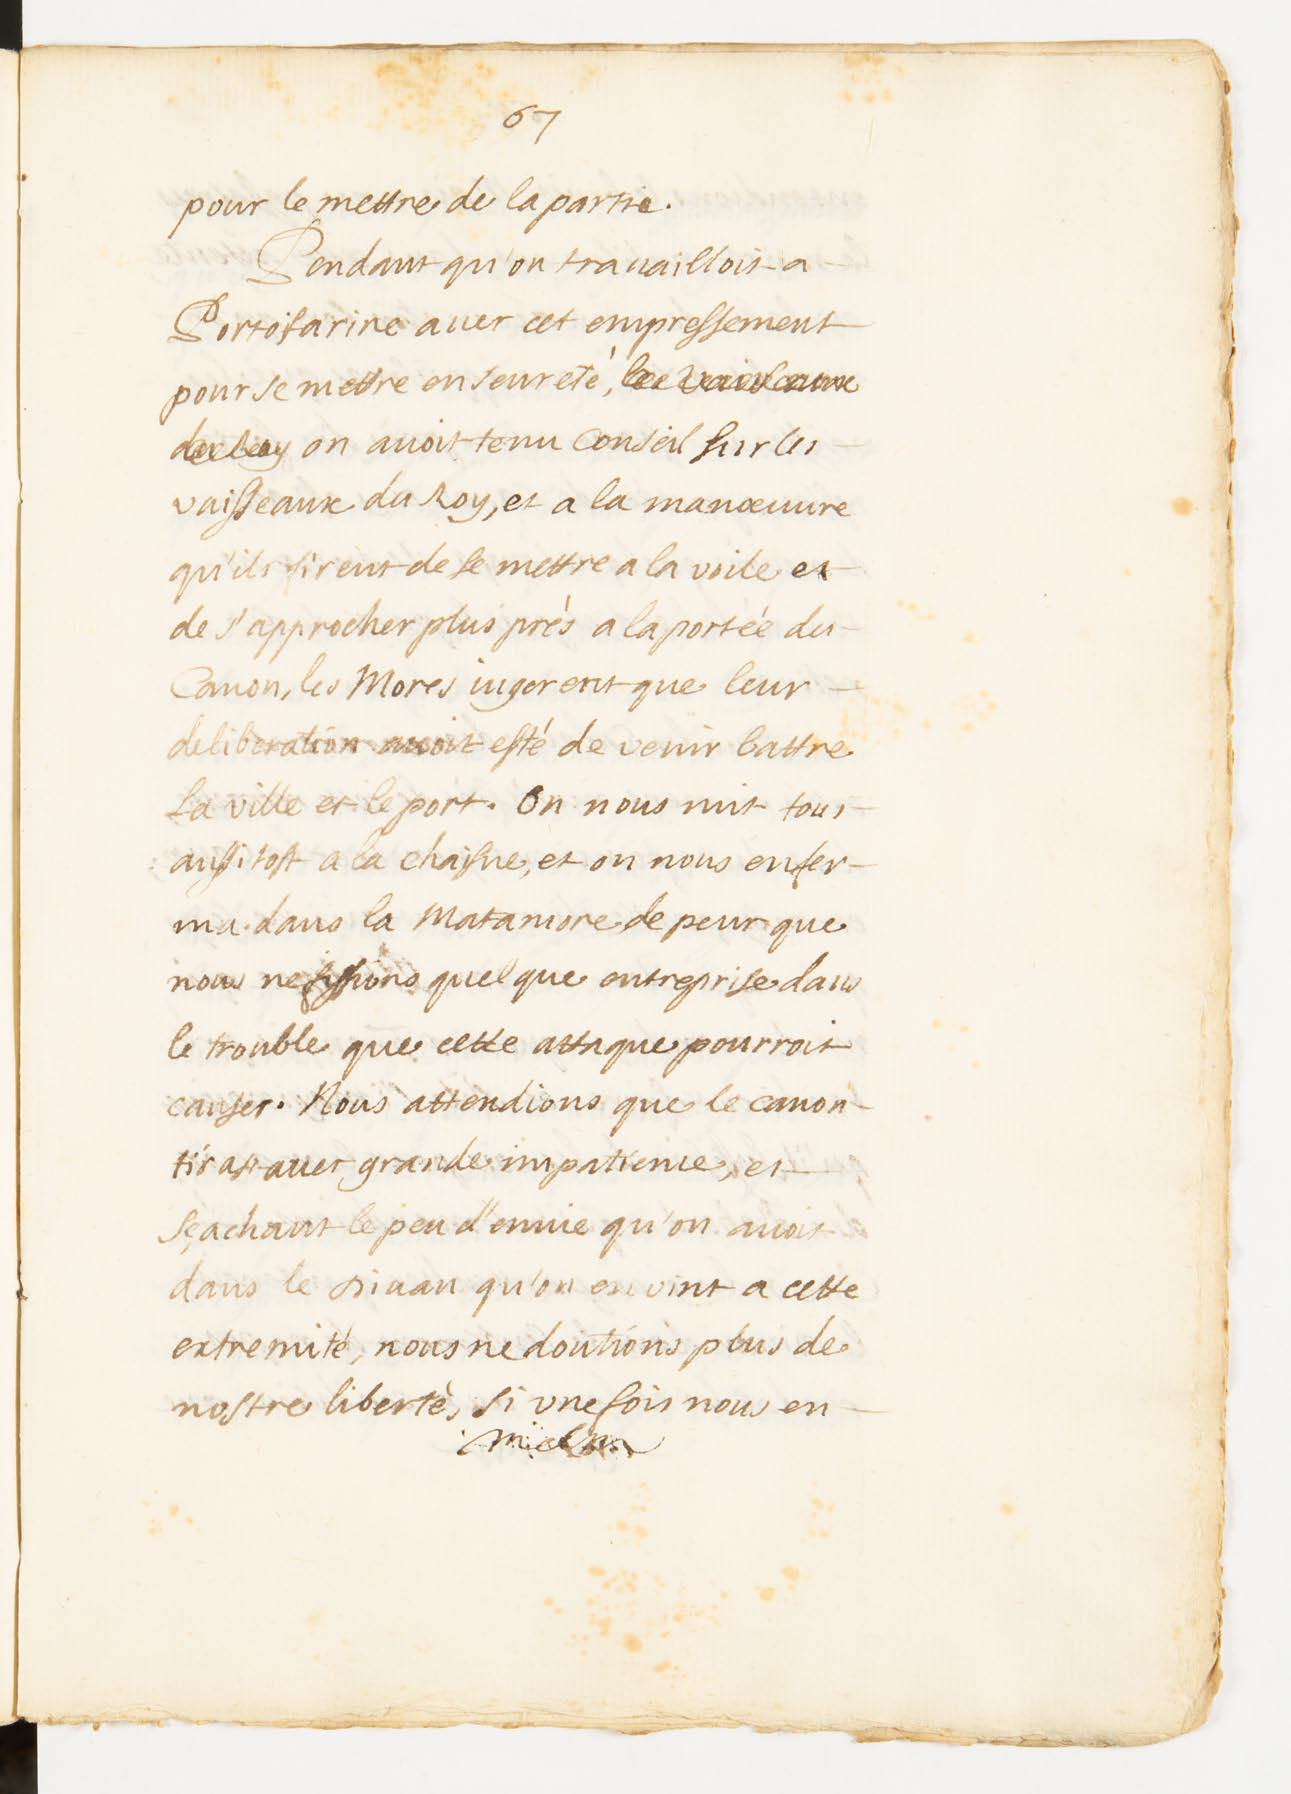 67
pour le mettre de la partie.
Pendant qu'on trauailloit a
Portofarine auec cet empressement
pour se mettre en seureté, les vaisseaux
du Roy on auoit tenu Conseil sur les
vaisseaux du Roy, et a la manœuure
qu'ils firent de se mettre a la voile et
de s'approcher plus prés a la portée du
Canon, les Mores iugerent que leur
deliberation auoit esté de venir battre
la ville et le port. On nous mit tous
aussitost a la chaisne, et on nous enfer-
ma dans la Matamore de peur que
nous ne fissions quelque entreprise dans
le trouble que cette attaque pourroit
causer. Nous attendions que le canon
tirast auec grande impatience, et
sçachant le peu d'enuie qu'on auoit
dans le Diuan qu'on en vint a cette
extremité, nous ne doutions plus de
nostre liberté, si vne fois nous en-